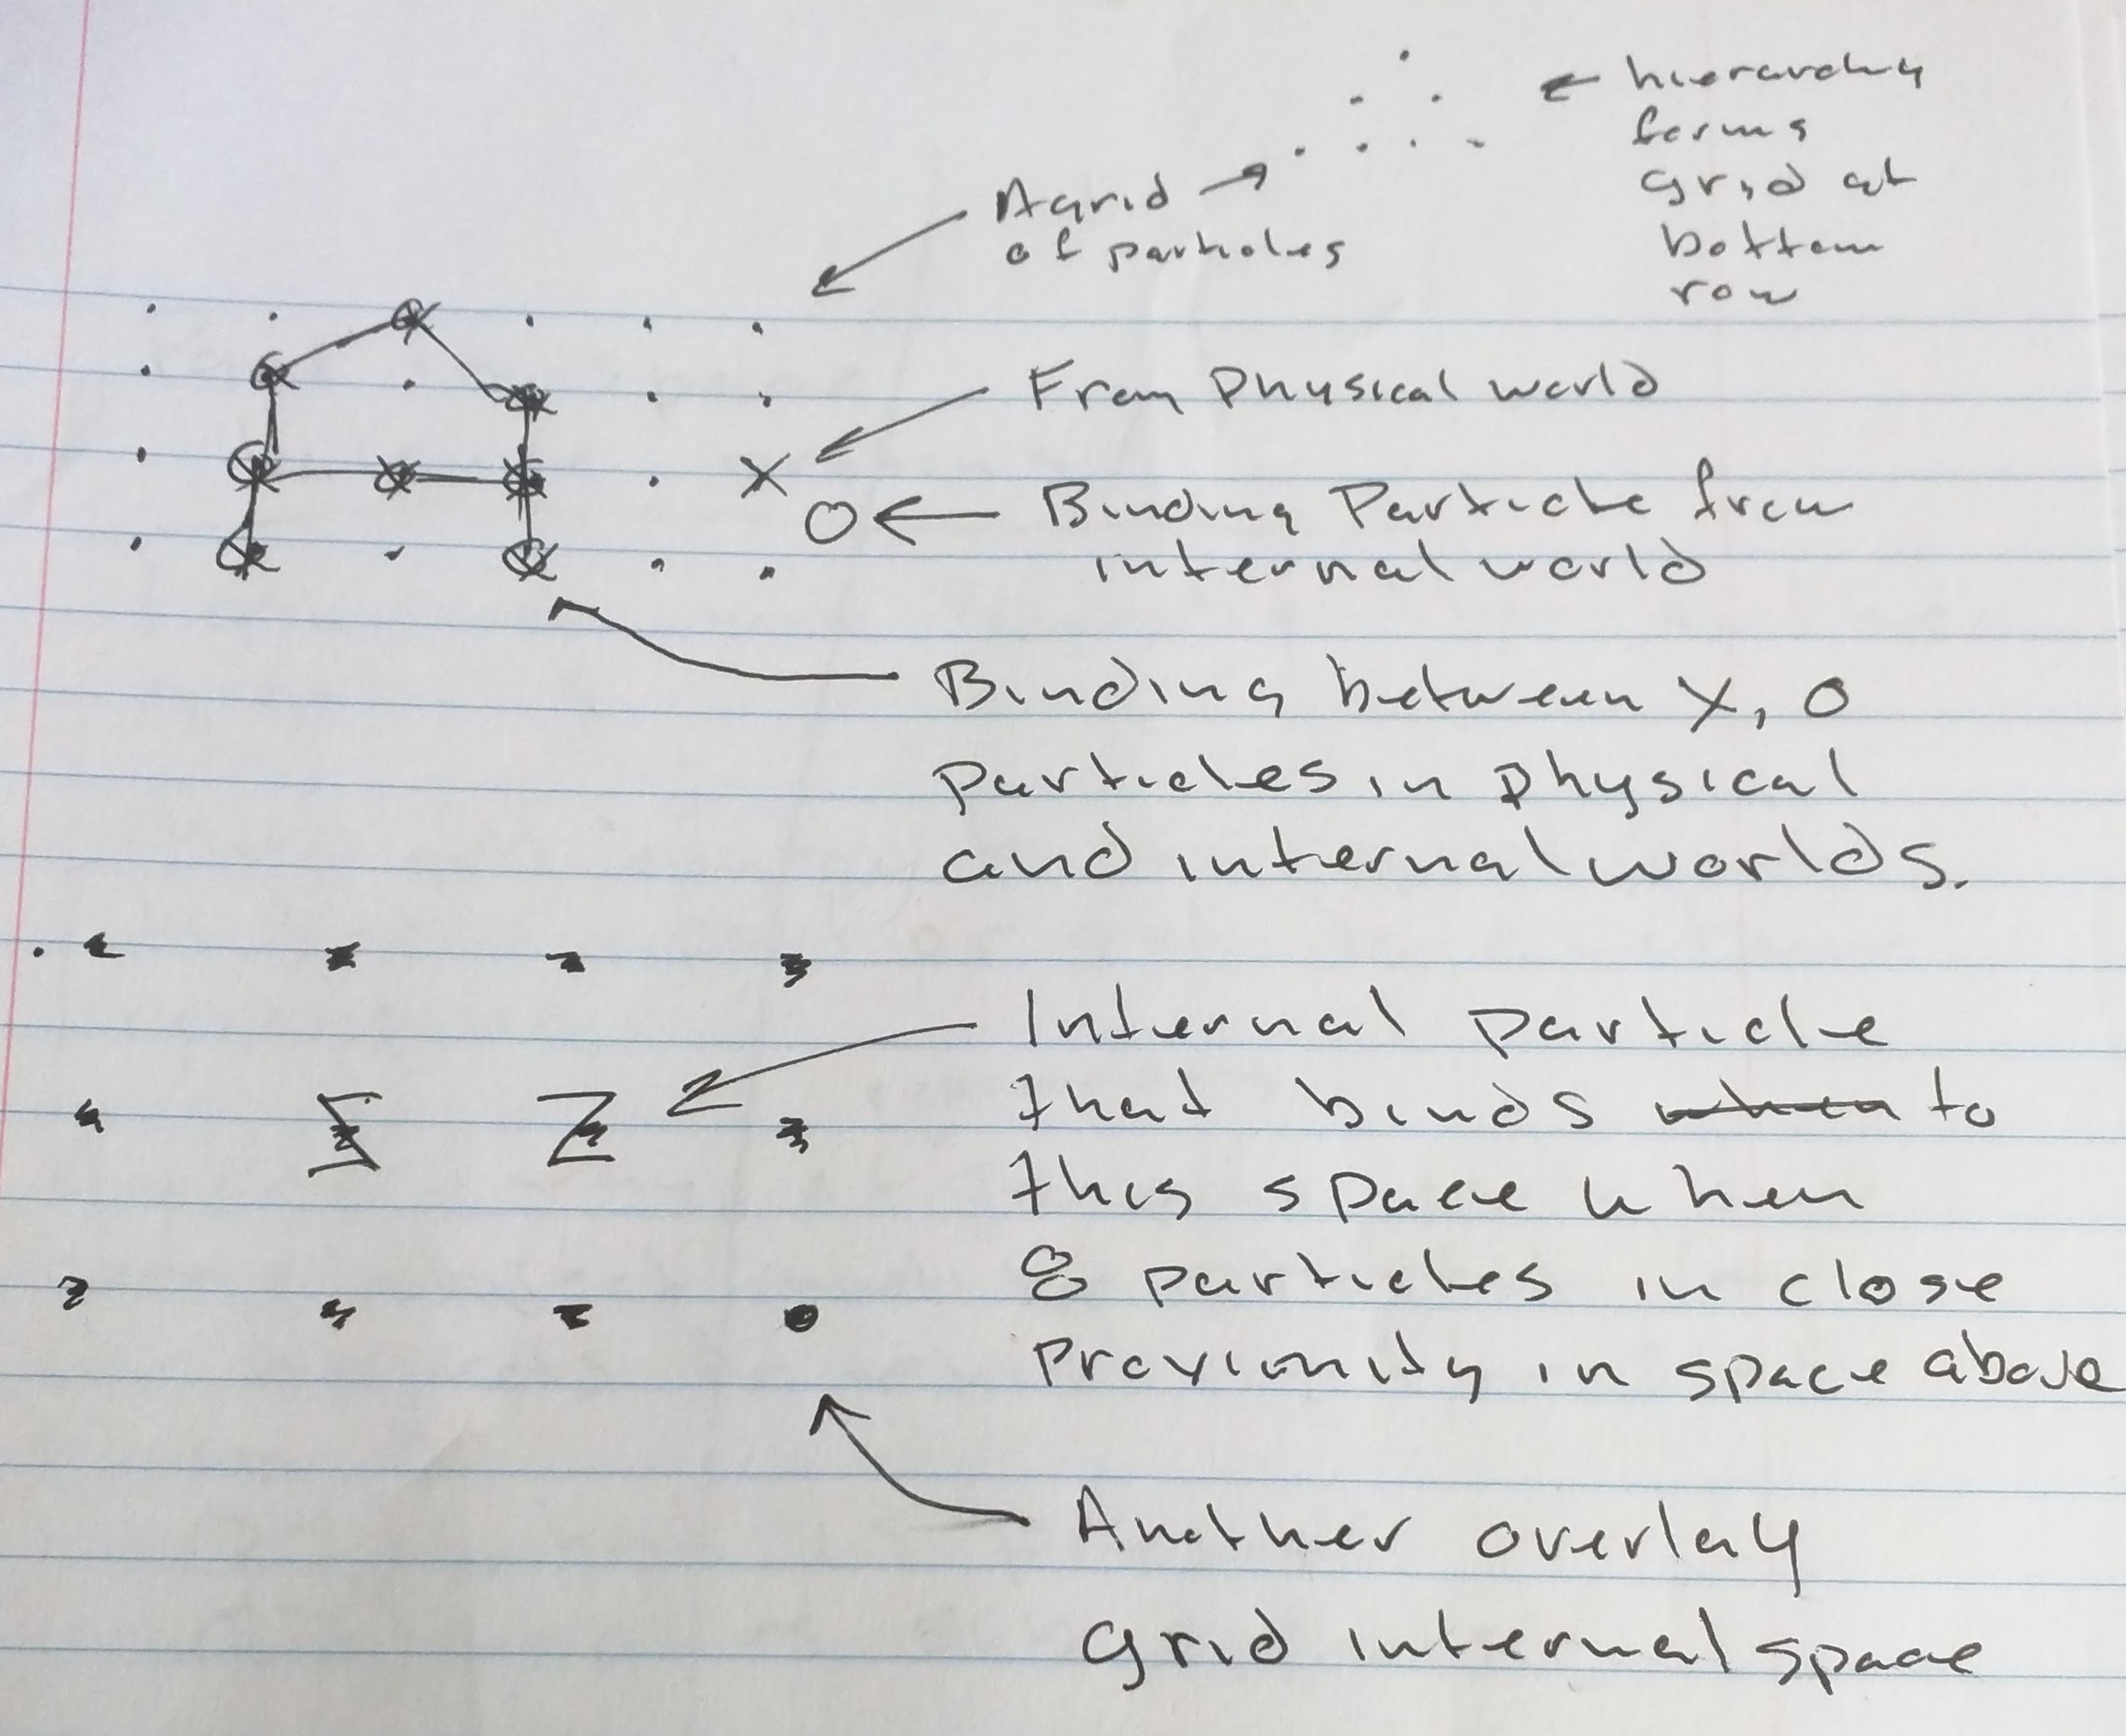 hierarchy
forms
grid at
bottom
row
A grid
of particles
From Physical world
X
O
Binding Particle from
internal world
Binding between X, O
particles in physical
and internal worlds.
Z Z
Internal particle
that binds when to
this space when
8 particles in close
Proximity in space above
Another overlay
grid internal space